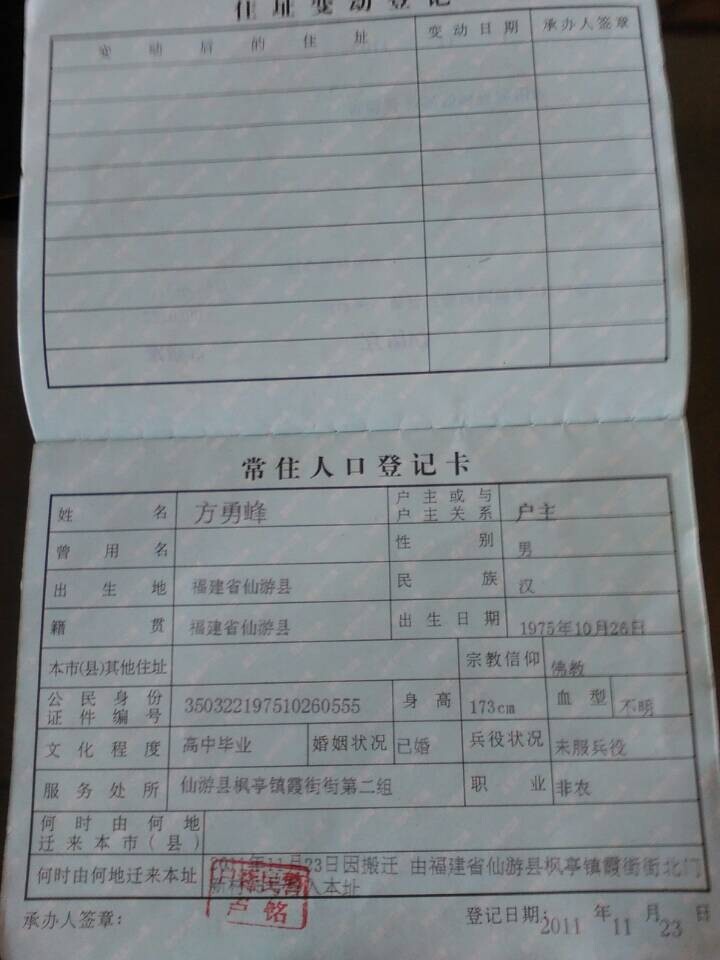 住址变动登记
变动后的住址 变动日期 承办人签章
常住人口登记卡
姓名 方勇峰 户主或与户主关系 户主
曾用名 性别 男
出生地 福建省仙游县 民族 汉
籍贯 福建省仙游县 出生日期 1975年10月26日
本市(县)其他住址 宗教信仰 佛教
公民身份证件编号 350322197510260555 身高 173cm 血型 不明
文化程度 高中毕业 婚姻状况 已婚 兵役状况 未服兵役
服务处所 仙游县枫亭镇霞街街第二组 职业 非农
何时由何地迁来本市(县)
何时由何地迁来本址 2011年11月23日因搬迁 由福建省仙游县枫亭镇霞街街北门
新村 入本址
承办人签章: 登记日期:2011年11月23日